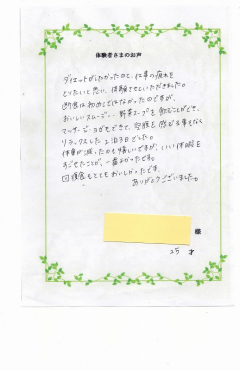 体験者さまのお声
ダイエットがしたかったのと、仕事の疲れを
とりたいと思い、体験させていただきました。
断食は初めてではなかったのですが、
おいしいスムージー、野菜スープを飲むことができ、
マッサージ、ヨガもできて、空腹を感じる事もなく
リラックスした2泊3日でした。
体重が減ったのも嬉しいですが、いい体験を
すごせたことが、一番よかったです。
回復食もとてもおいしかったです。
ありがとうございました。
様
25 才